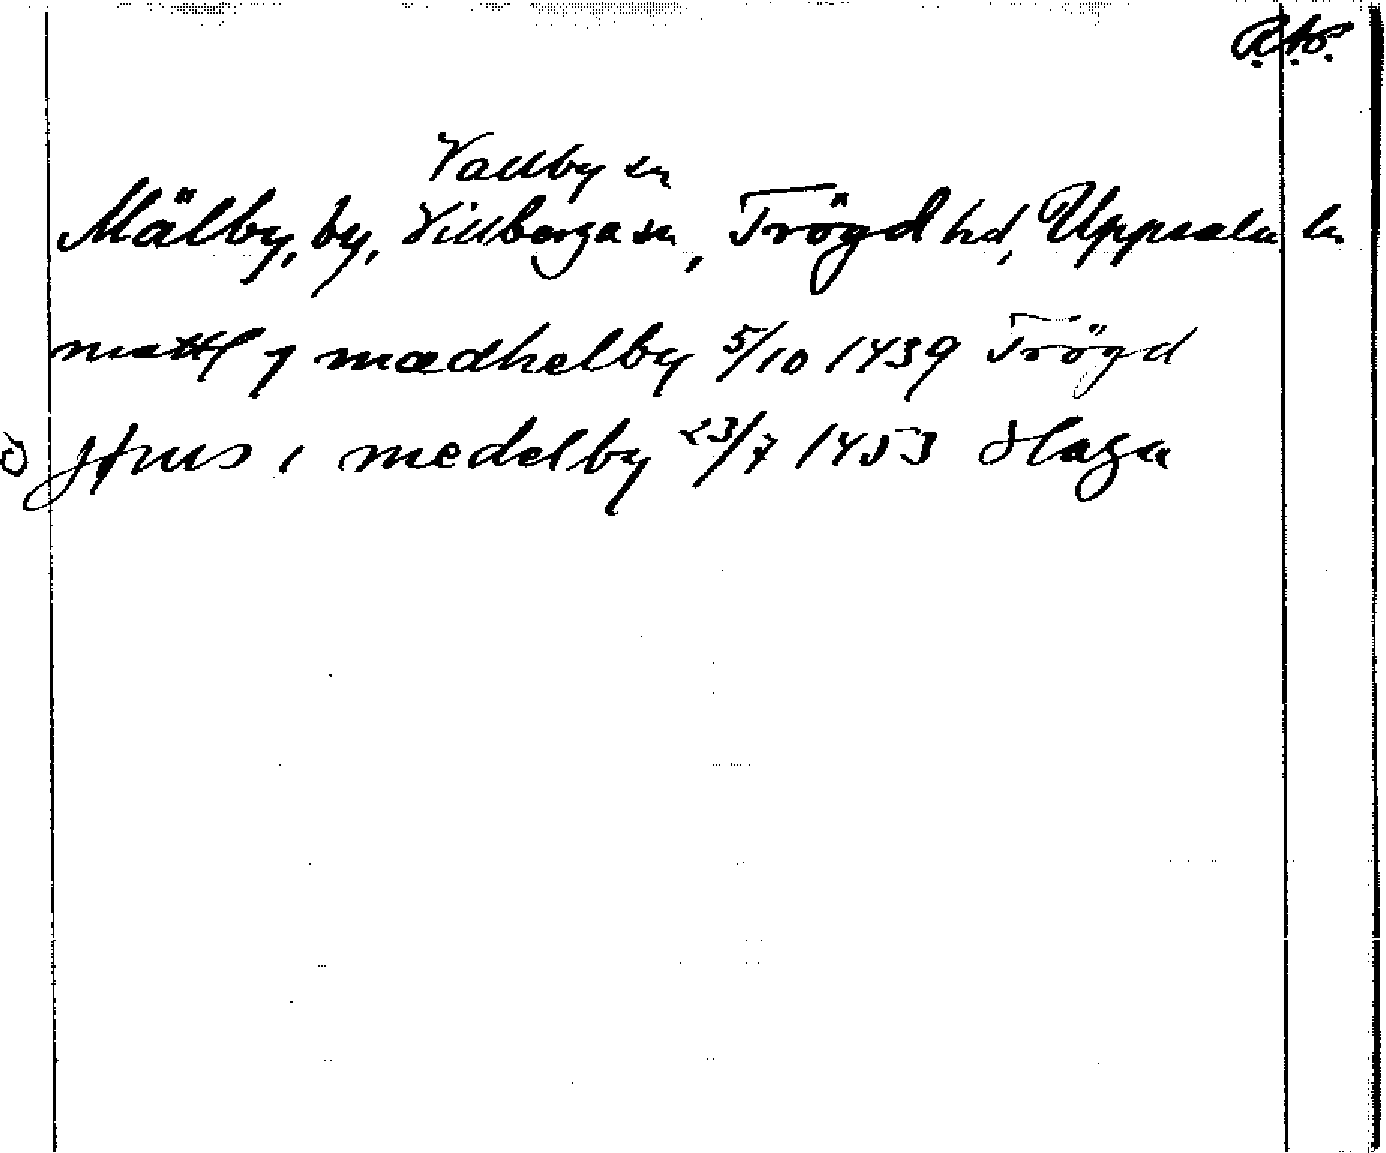 R.A.P.
Vallby sn
Mälby, by, Villberga sn, Trögd hd, Uppsala ln
j mædhelby 5/10 1439 Trögd
Jönus i medelby 23/7 1453 Haga